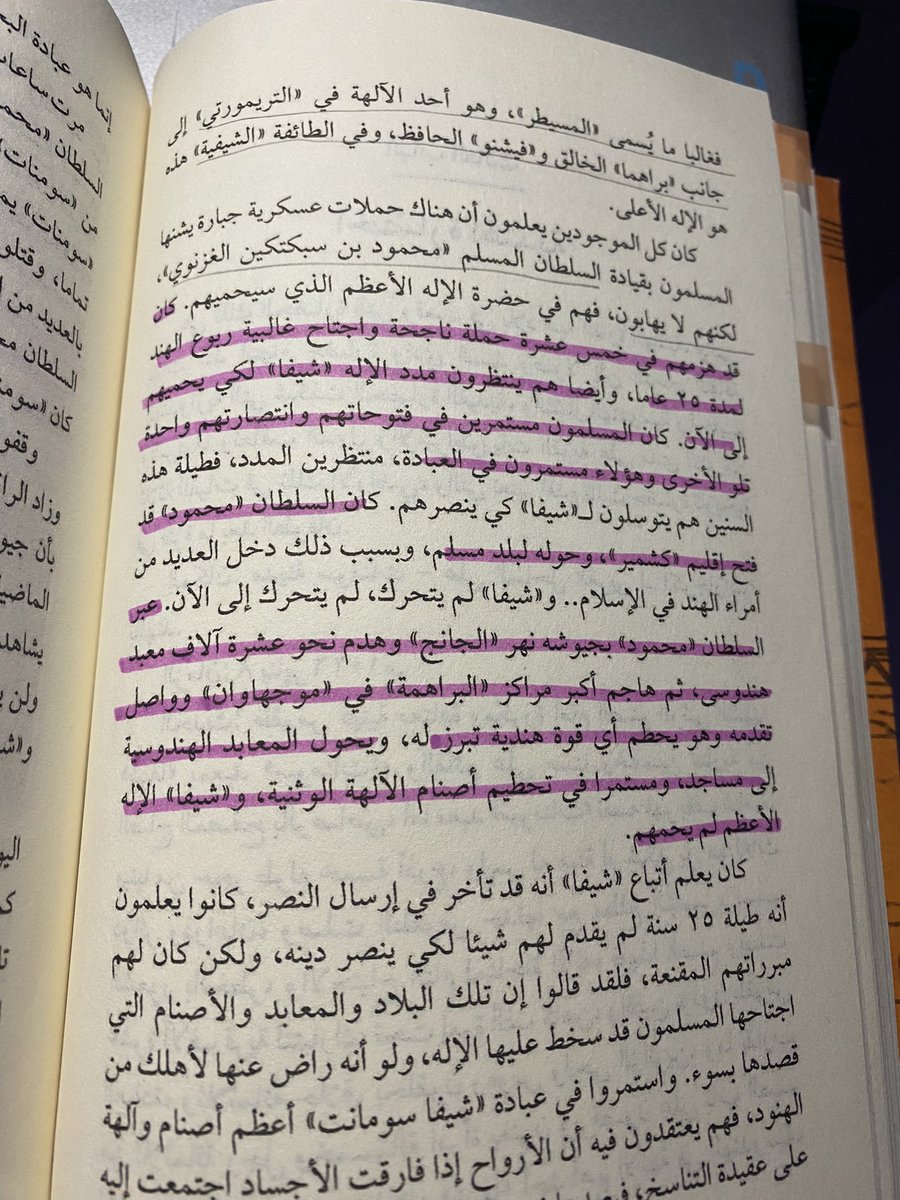 فغالبا ما يُسمى «المسيطر»، وهو أحد الآلهة في «التريمورتي» إلى
جانب «براهما» الخالق و«فيشنو» الحافظ، وفي الطائفة «الشيفية» هذه
هو الإله الأعلى.
كان كل الموجودين يعلمون أن هناك حملات عسكرية جبارة يشنها
المسلمون بقيادة السلطان المسلم «محمود بن سبكتكين الغزنوي»،
لكنهم لا يهابون، فهم في حضرة الإله الأعظم الذي سيحميهم. كان
قد هزمهم في خمس عشرة حملة ناجحة واجتاح غالبية ربوع الهند
لمدة ٢٥ عاما، وأيضا هم ينتظرون مدد الإله «شيفا» لكي يحميهم
إلى الآن. كان المسلمون مستمرين في فتوحاتهم وانتصارتهم واحدة
تلو الأخرى وهؤلاء مستمرون في العبادة، منتظرين المدد، فطيلة هذه
السنين هم يتوسلون لـ«شيفا» كي ينصرهم. كان السلطان «محمود» قد
فتح إقليم «كشمير»، وحوله لبلد مسلم، وبسبب ذلك دخل العديد من
أمراء الهند في الإسلام.. و«شيفا» لم يتحرك، لم يتحرك إلى الآن. عبر
السلطان «محمود» بجيوشه نهر «الجانج» وهدم نحو عشرة آلاف معبد
هندوسى، ثم هاجم أكبر مراكز «البراهمة» في «موجهاوان» وواصل
تقدمه وهو يحطم أي قوة هندية تبرز له، ويحول المعابد الهندوسية
إلى مساجد، ومستمرا في تحطيم أصنام الآلهة الوثنية، و«شيفا» الإله
الأعظم لم يحمهم.
كان يعلم أتباع «شيفا» أنه قد تأخر في إرسال النصر، كانوا يعلمون
أنه طيلة ٢٥ سنة لم يقدم لهم شيئا لكي ينصر دينه، ولكن كان لهم
مبرراتهم المقنعة، فلقد قالوا إن تلك البلاد والمعابد والأصنام التي
اجتاحها المسلمون قد سخط عليها الإله، ولو أنه راض عنها لأهلك من
قصدها بسوء. واستمروا في عبادة «شيفا سومانت» أعظم أصنام وآلهة
الهنود، فهم يعتقدون فيه أن الأرواح إذا فارقت الأجساد اجتمعت إليه
على عقيدة التناسخ،
إنما هو عبادة
مرت ساعات
السلطان
من «سومنات»
«سومنات»
تماما، وقتلو
بالعديد من
السلطان
كان
وقفو
وزاد
بأن
يشاهد
ولن